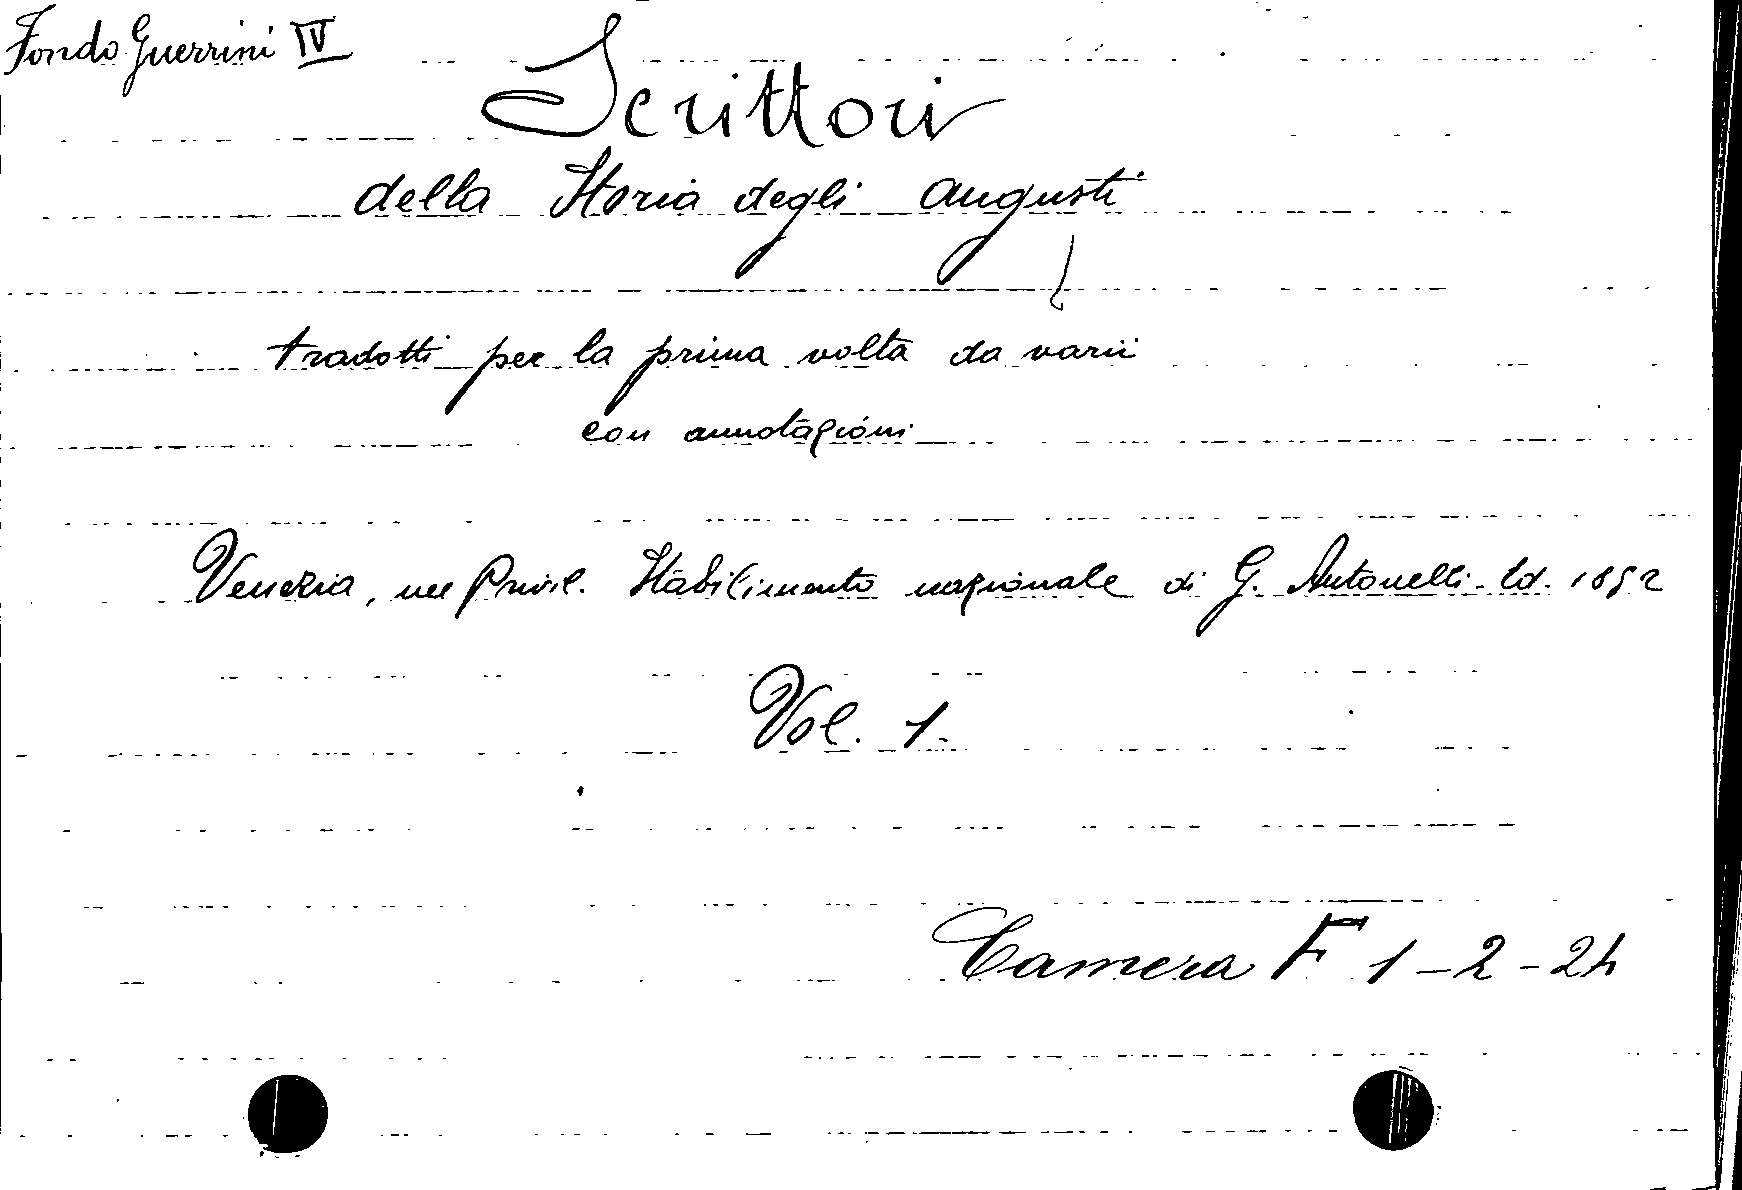 Fondo Guerrini IV
Scrittori
della Storia degli Augusti
tradotti per la prima volta da varii
con annotazioni
Venezia, nel Privil. Stabilimento nazionale di G. Antonelli. Ed. 1852
Vol. 1.
Camera F 1-2-24